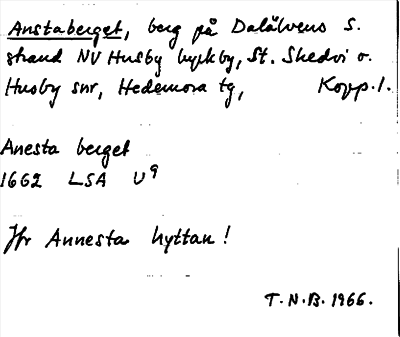 Anstaberget, berg på Dalälvens S.
strand NV Husby kyrkby, St. Skedvi o.
Husby snr, Hedemora tg, Kopp.l.
Anesta berget
1662 LSA U9
Jfr Annesta hyttan!
T.N.B. 1966.